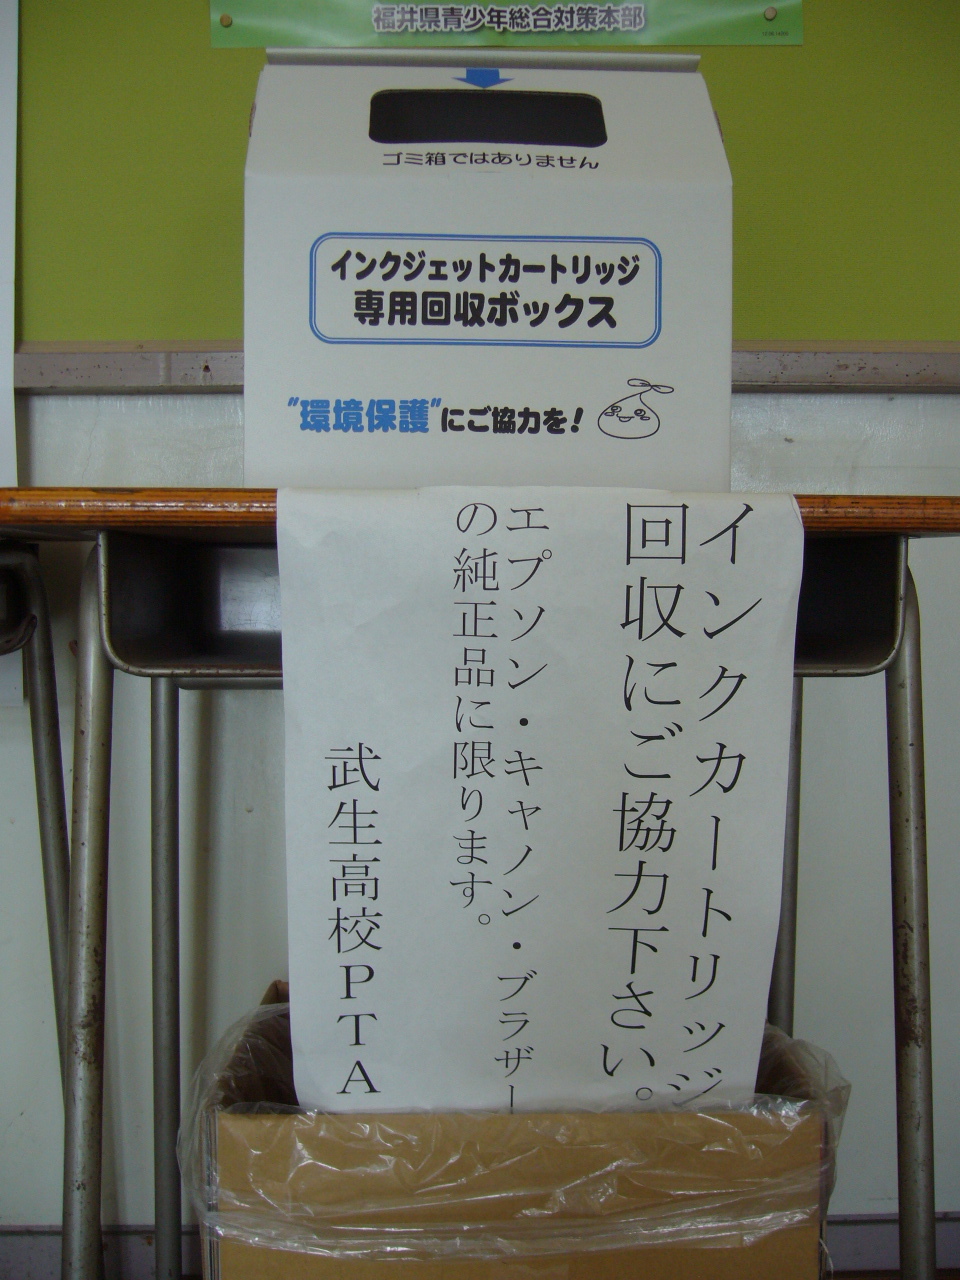 福井県青少年総合対策本部
ゴミ箱ではありません
インクジェットカートリッジ
専用回収ボックス
"環境保護"にご協力を!
インクカートリッジ
回収にご協力下さい。
エプソン・キャノン・ブラザー
の純正品に限ります。
武生高校PTA